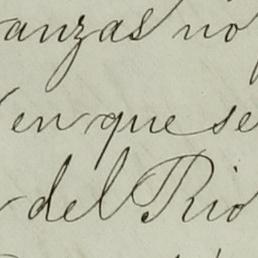 anzas no
en que se
del Rio